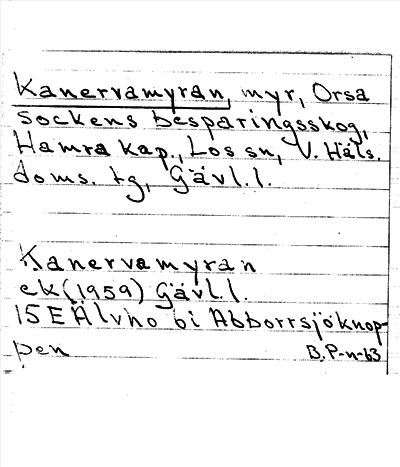 Kanervamyran, myr, Orsa
sockens besparingsskog,
Hamra kap., Los sn, V. Häls.
doms. tg, Gävl. l.
Kanervamyran
ek (1959) Gävl. l.
15 E Älvho bi Abborrsjöknop-
pen B. P-n-63